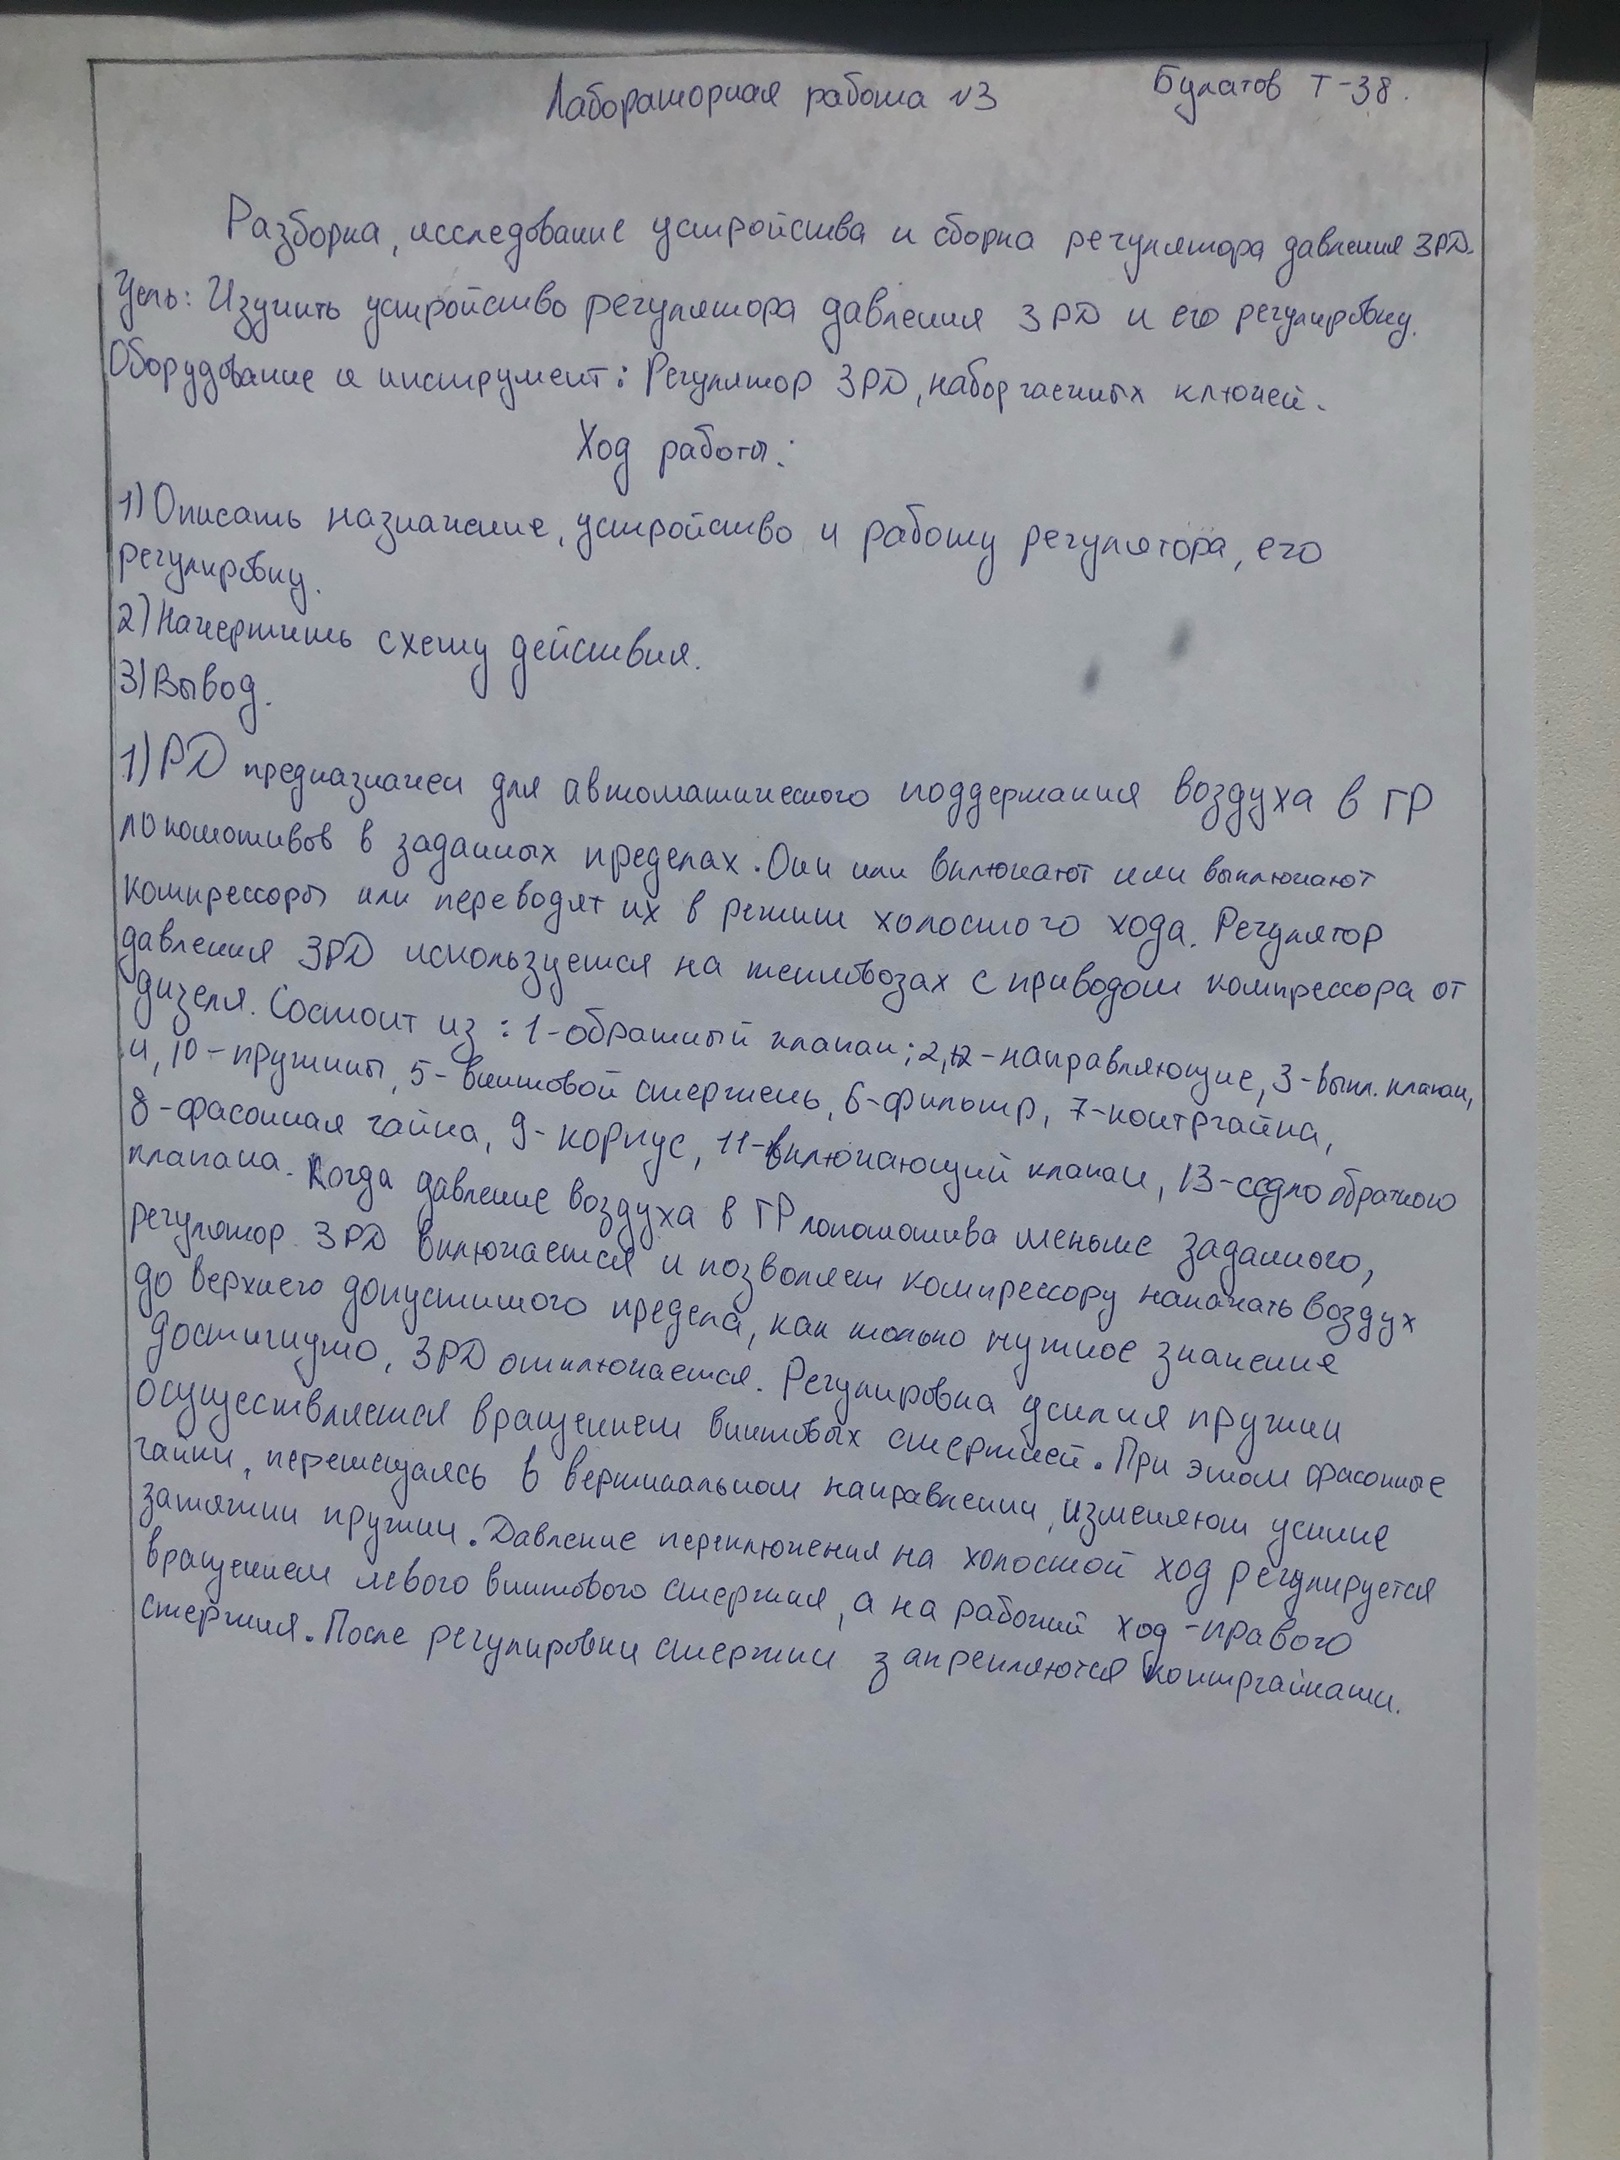 Лабораторная работа №3
Булатов Т-38.
Разборка, исследование устройства и сборка регулятора давления 3РД.
Цель: Изучить устройство регулятора давления 3РД и его регулировку.
Оборудование и инструмент: Регулятор 3РД, набор гаечных ключей.
Ход работы:
1) Описать назначение, устройство и работу регулятора, его
регулировку.
2) Начертить схему действия.
3) Вывод.
1) РД предназначен для автоматического поддержания воздуха в ГР
локомотивов в заданных пределах. Они или включают или выключают
компрессоры или переводят их в режим холостого хода. Регулятор
давления 3РД используется на тепловозах с приводом компрессора от
дизеля. Состоит из: 1-обратный клапан; 2,12-направляющие, 3-выкл. клапан,
4,10-пружины, 5-винтовой стержень, 6-фильтр, 7-контргайка,
8-фасонная гайка, 9-корпус, 11-включающий клапан, 13-седло обратного
клапана. Когда давление воздуха в ГР локомотива меньше заданного,
регулятор 3РД включается и позволяет компрессору накачать воздух
до верхнего допустимого предела, как только нужное значение
достигнуто, 3РД отключается. Регулировка усилия пружин
осуществляется вращением винтовых стержней. При этом фасонные
гайки, перемещаясь в вертикальном направлении, изменяют усилие
затяжки пружин. Давление переключения на холостой ход регулируется
вращением левого винтового стержня, а на рабочий ход - правого
стержня. После регулировки стержни закрепляются контргайками.